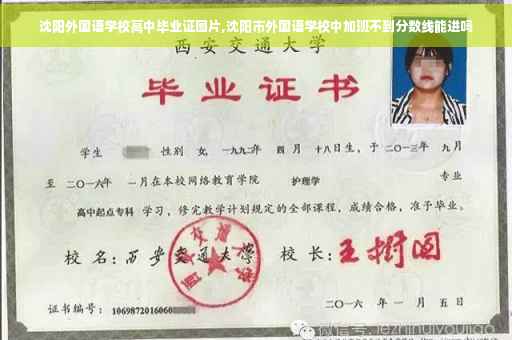 沈阳外国语学校高中毕业证图片,沈阳市外国语学校中加班不到分数线能进吗
西安交通大学
毕业证书
学生 性别 女, 一九九二年 四月 十八日生, 于 二〇一三年 九月
至 二〇一六年 一月在本校网络教育学院 护理学 专业
高中起点专科 学习, 修完教学计划规定的全部课程, 成绩合格, 准予毕业。
校名: 西安交通大学 校长: 王树国
西安交通大学
证书编号: 1069872016060
二〇一六 年 一 月 五 日
微信号: jezhihuiyoujiao